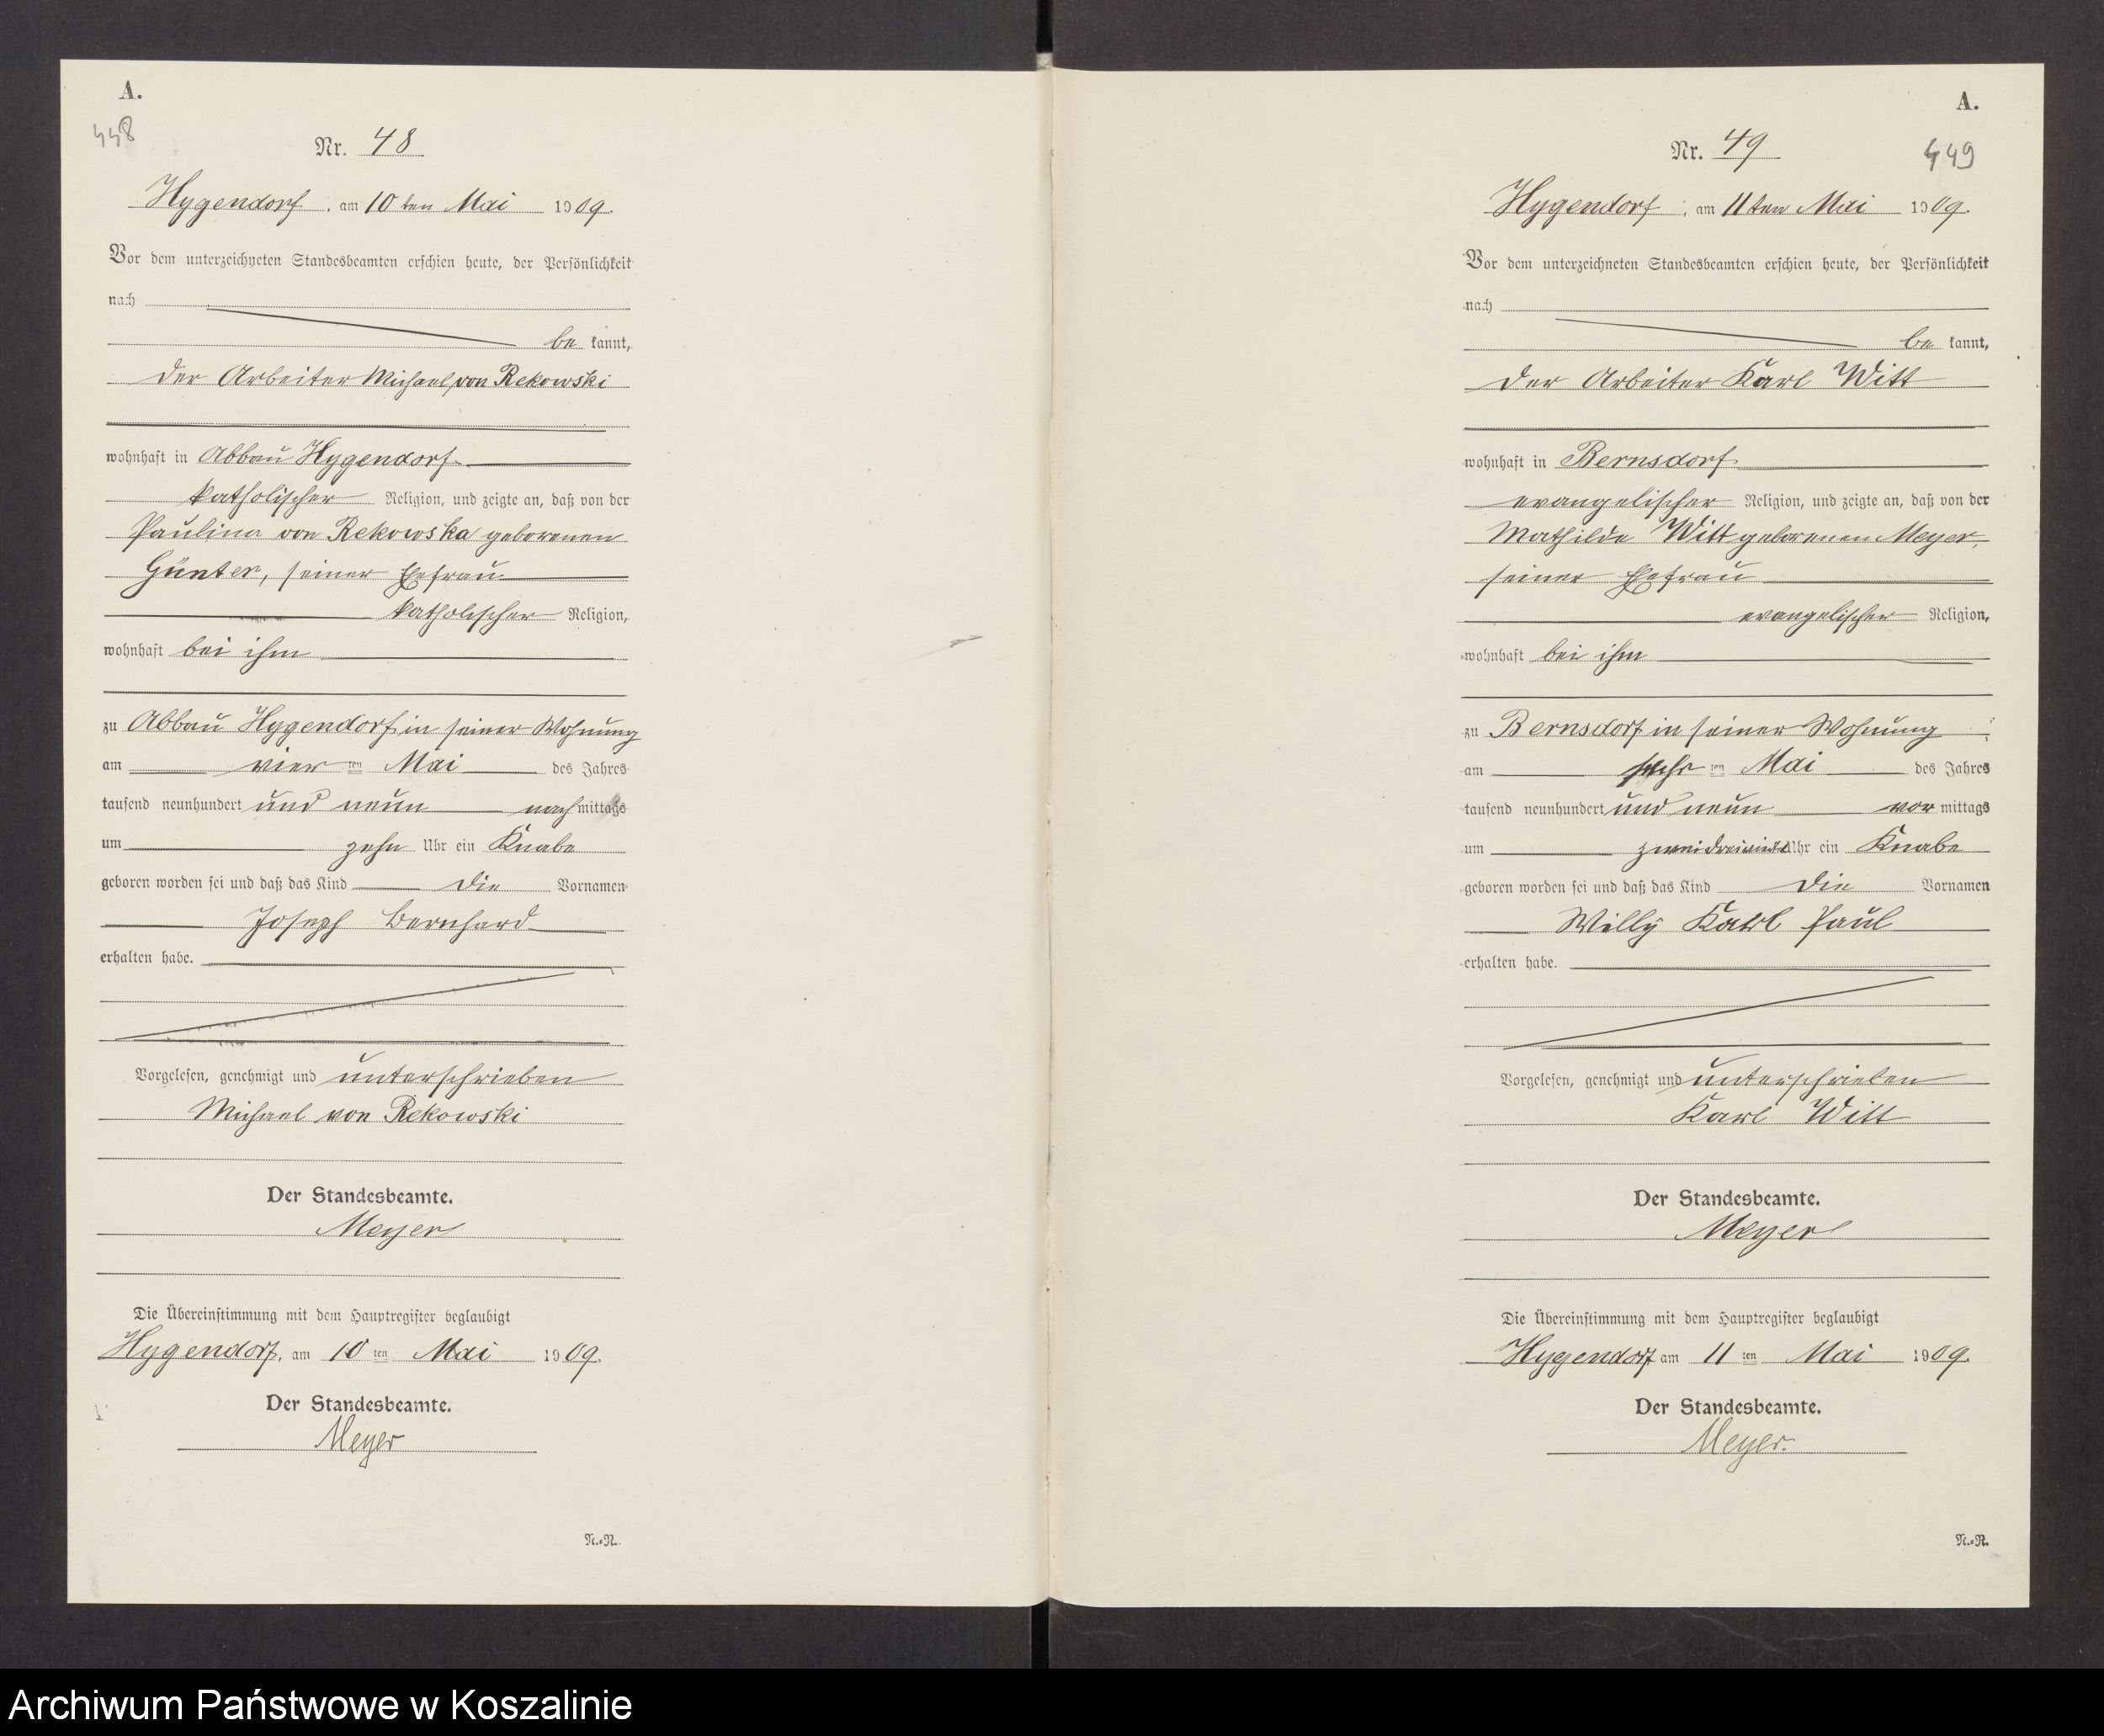 A.
448
Nr. 48
Hygendorf, am 10ten Mai 1909.
Vor dem unterzeichneten Standesbeamten erschien heute, der Persönlichkeit
nach
bekannt,
der Arbeiter Michael von Rekowski
wohnhaft in Abbau Hygendorf
katholischer Religion, und zeigte an, daß von der
Paulina von Rekowska geborenen
Günter, seiner Ehefrau
katholischer Religion,
wohnhaft bei ihm
zu Abbau Hygendorf in seiner Wohnung
am vier ten Mai des Jahres
tausend neunhundert und neun nachmittags
um zehn Uhr ein Knabe
geboren worden sei und daß das Kind die Vornamen
Joseph Bernhard
erhalten habe.
Vorgelesen, genehmigt und unterschrieben
Michael von Rekowski
Der Standesbeamte.
Meyer
Die Übereinstimmung mit dem Hauptregister beglaubigt
Hygendorf, am 10 ten Mai 1909.
Der Standesbeamte.
Meyer
N.-R.
A.
449
Nr. 49
Hygendorf, am 11ten Mai 1909.
Vor dem unterzeichneten Standesbeamten erschien heute, der Persönlichkeit
nach
bekannt,
der Arbeiter Karl Witt
wohnhaft in Bernsdorf
evangelischer Religion, und zeigte an, daß von der
Mathilde Witt geborenen Meyer,
seiner Ehefrau
evangelischer Religion,
wohnhaft bei ihm
zu Bernsdorf in seiner Wohnung
am sechs ten Mai des Jahres
tausend neunhundert und neun vormittags
um zweidreiviertel Uhr ein Knabe
geboren worden sei und daß das Kind die Vornamen
Willy Karl Paul
erhalten habe.
Vorgelesen, genehmigt und unterschrieben
Karl Witt
Der Standesbeamte.
Meyer
Die Übereinstimmung mit dem Hauptregister beglaubigt
Hygendorf am 11 ten Mai 1909.
Der Standesbeamte.
Meyer.
N.-R.
Archiwum Państwowe w Koszalinie